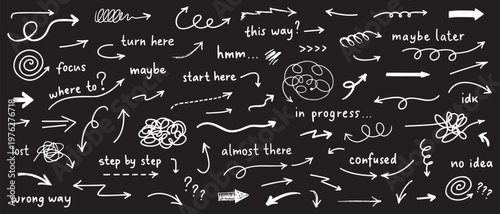 this way?
turn here
maybe later
hmm...
focus
maybe
start here
where to?
idk
in progress...
lost
almost there
step by step
confused
no idea
???
???
wrong way